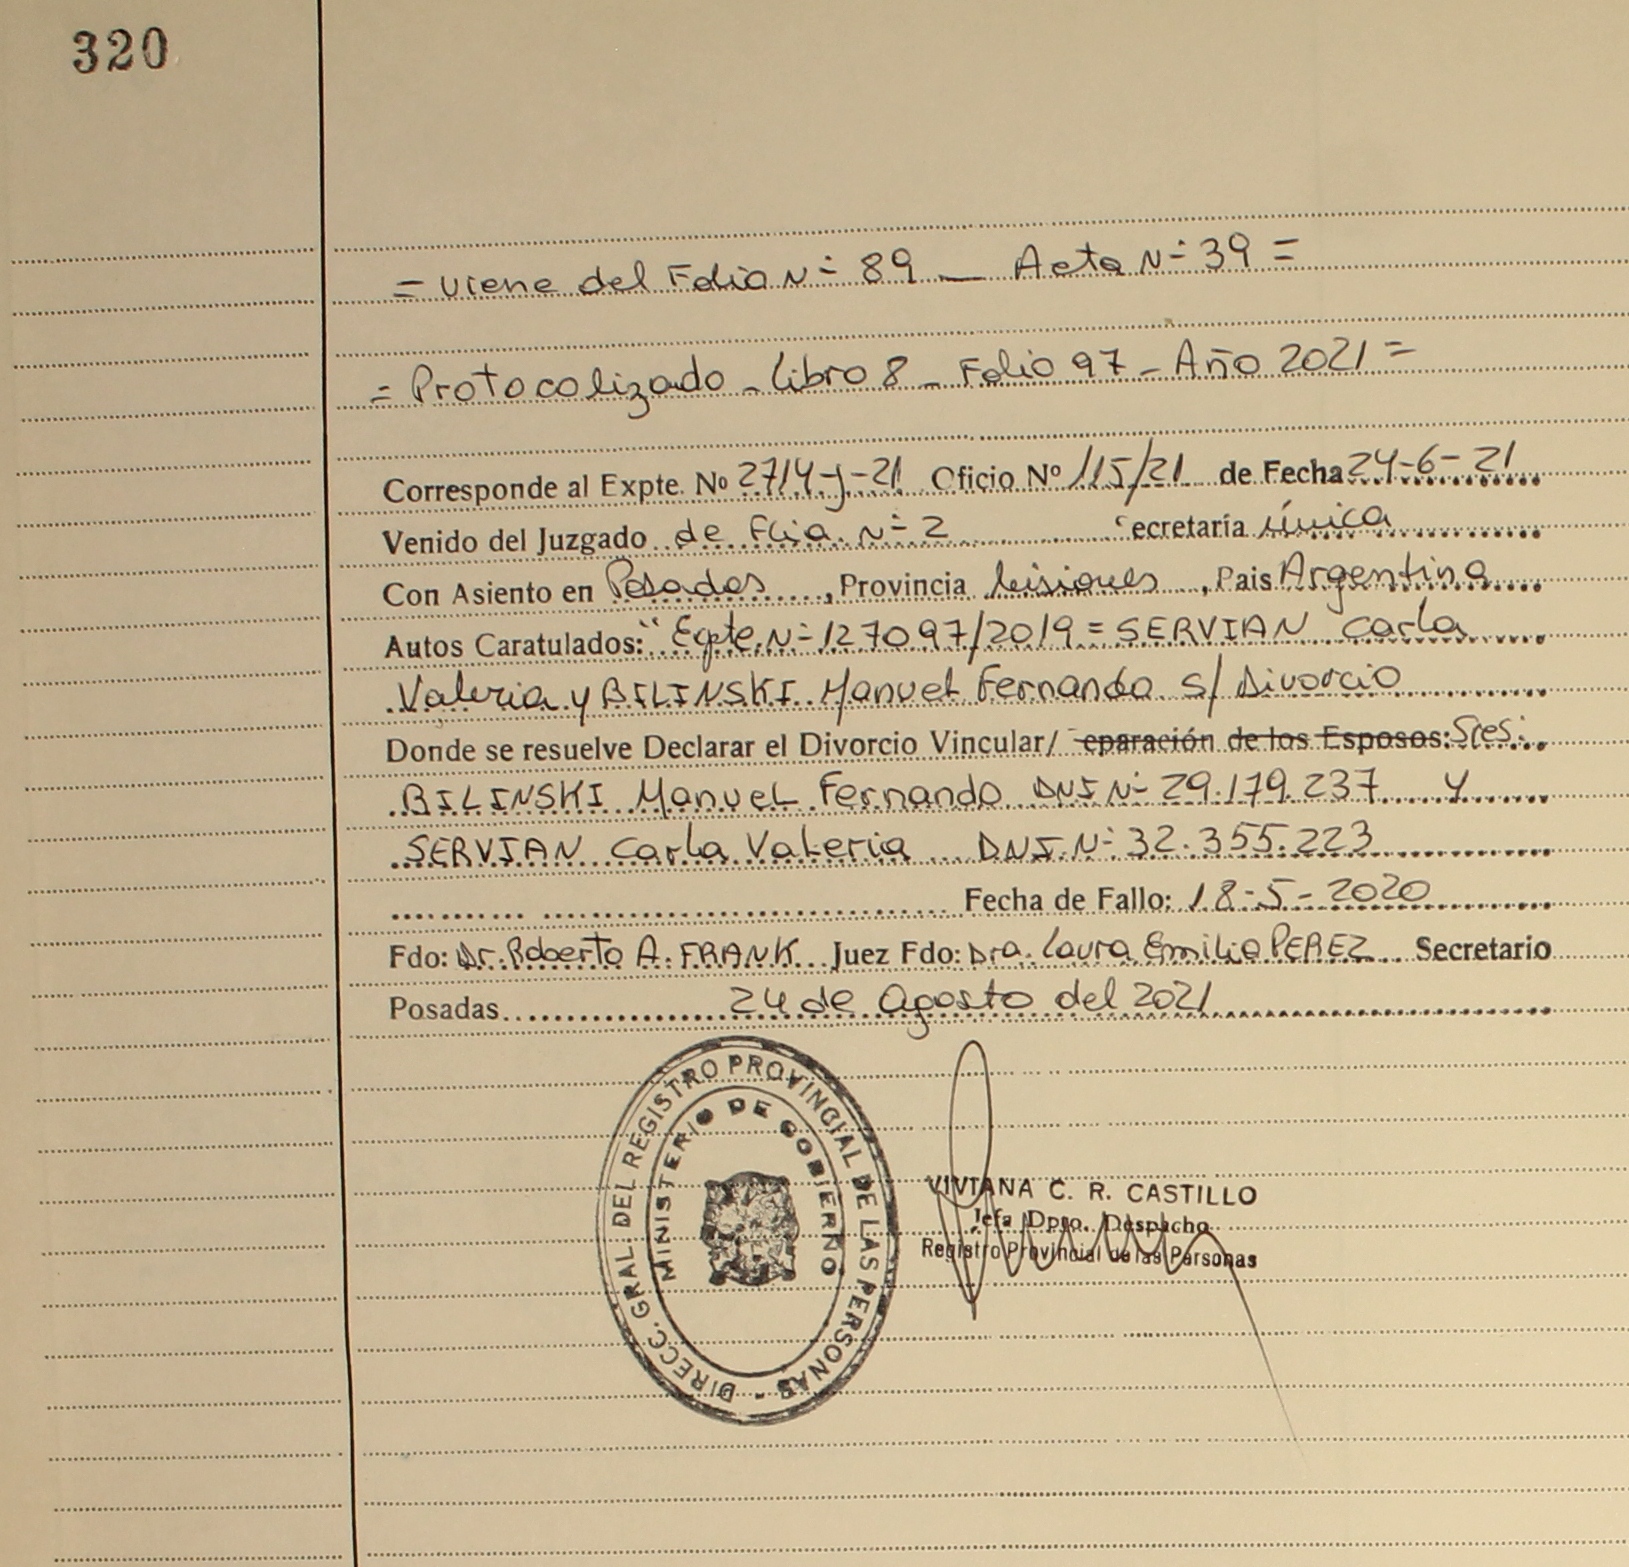 320
= viene del Folio N° 89 _ Acta N° 39 =
= Protocolizado _ Libro 8 _ Folio 97 _ Año 2021 =
Corresponde al Expte. Nº 2714-J-21 Oficio Nº 115/21 de Fecha 24-6-21
Venido del Juzgado de Flia. N° 2 ecretaría única
Con Asiento en Posadas, Provincia Misiones, Pais Argentina
Autos Caratulados: "Expte. N° 127097/2019 = SERVIAN Carla
Valeria y BILINSKI Manuel Fernando s/ Divorcio
Donde se resuelve Declarar el Divorcio Vincular/ eparación de los Esposos: Sres:
BILINSKI Manuel Fernando DNI N° 29.179.237 y
SERVIAN Carla Valeria DNI N° 32.355.223
Fecha de Fallo: 18-5-2020
Fdo: Dr. Roberto A. FRANK Juez Fdo: Dra. Laura Emilia PEREZ Secretario
Posadas 24 de Agosto del 2021
DIRECC. GRAL. DEL REGISTRO PROVINCIAL DE LAS PERSONAS -
MINISTERIO DE GOBIERNO
VIVIANA C. R. CASTILLO
Jefa Dpto. Despacho
Registro Provincial de las Personas